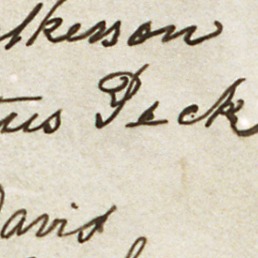 lkerson
tus Peck
Davis